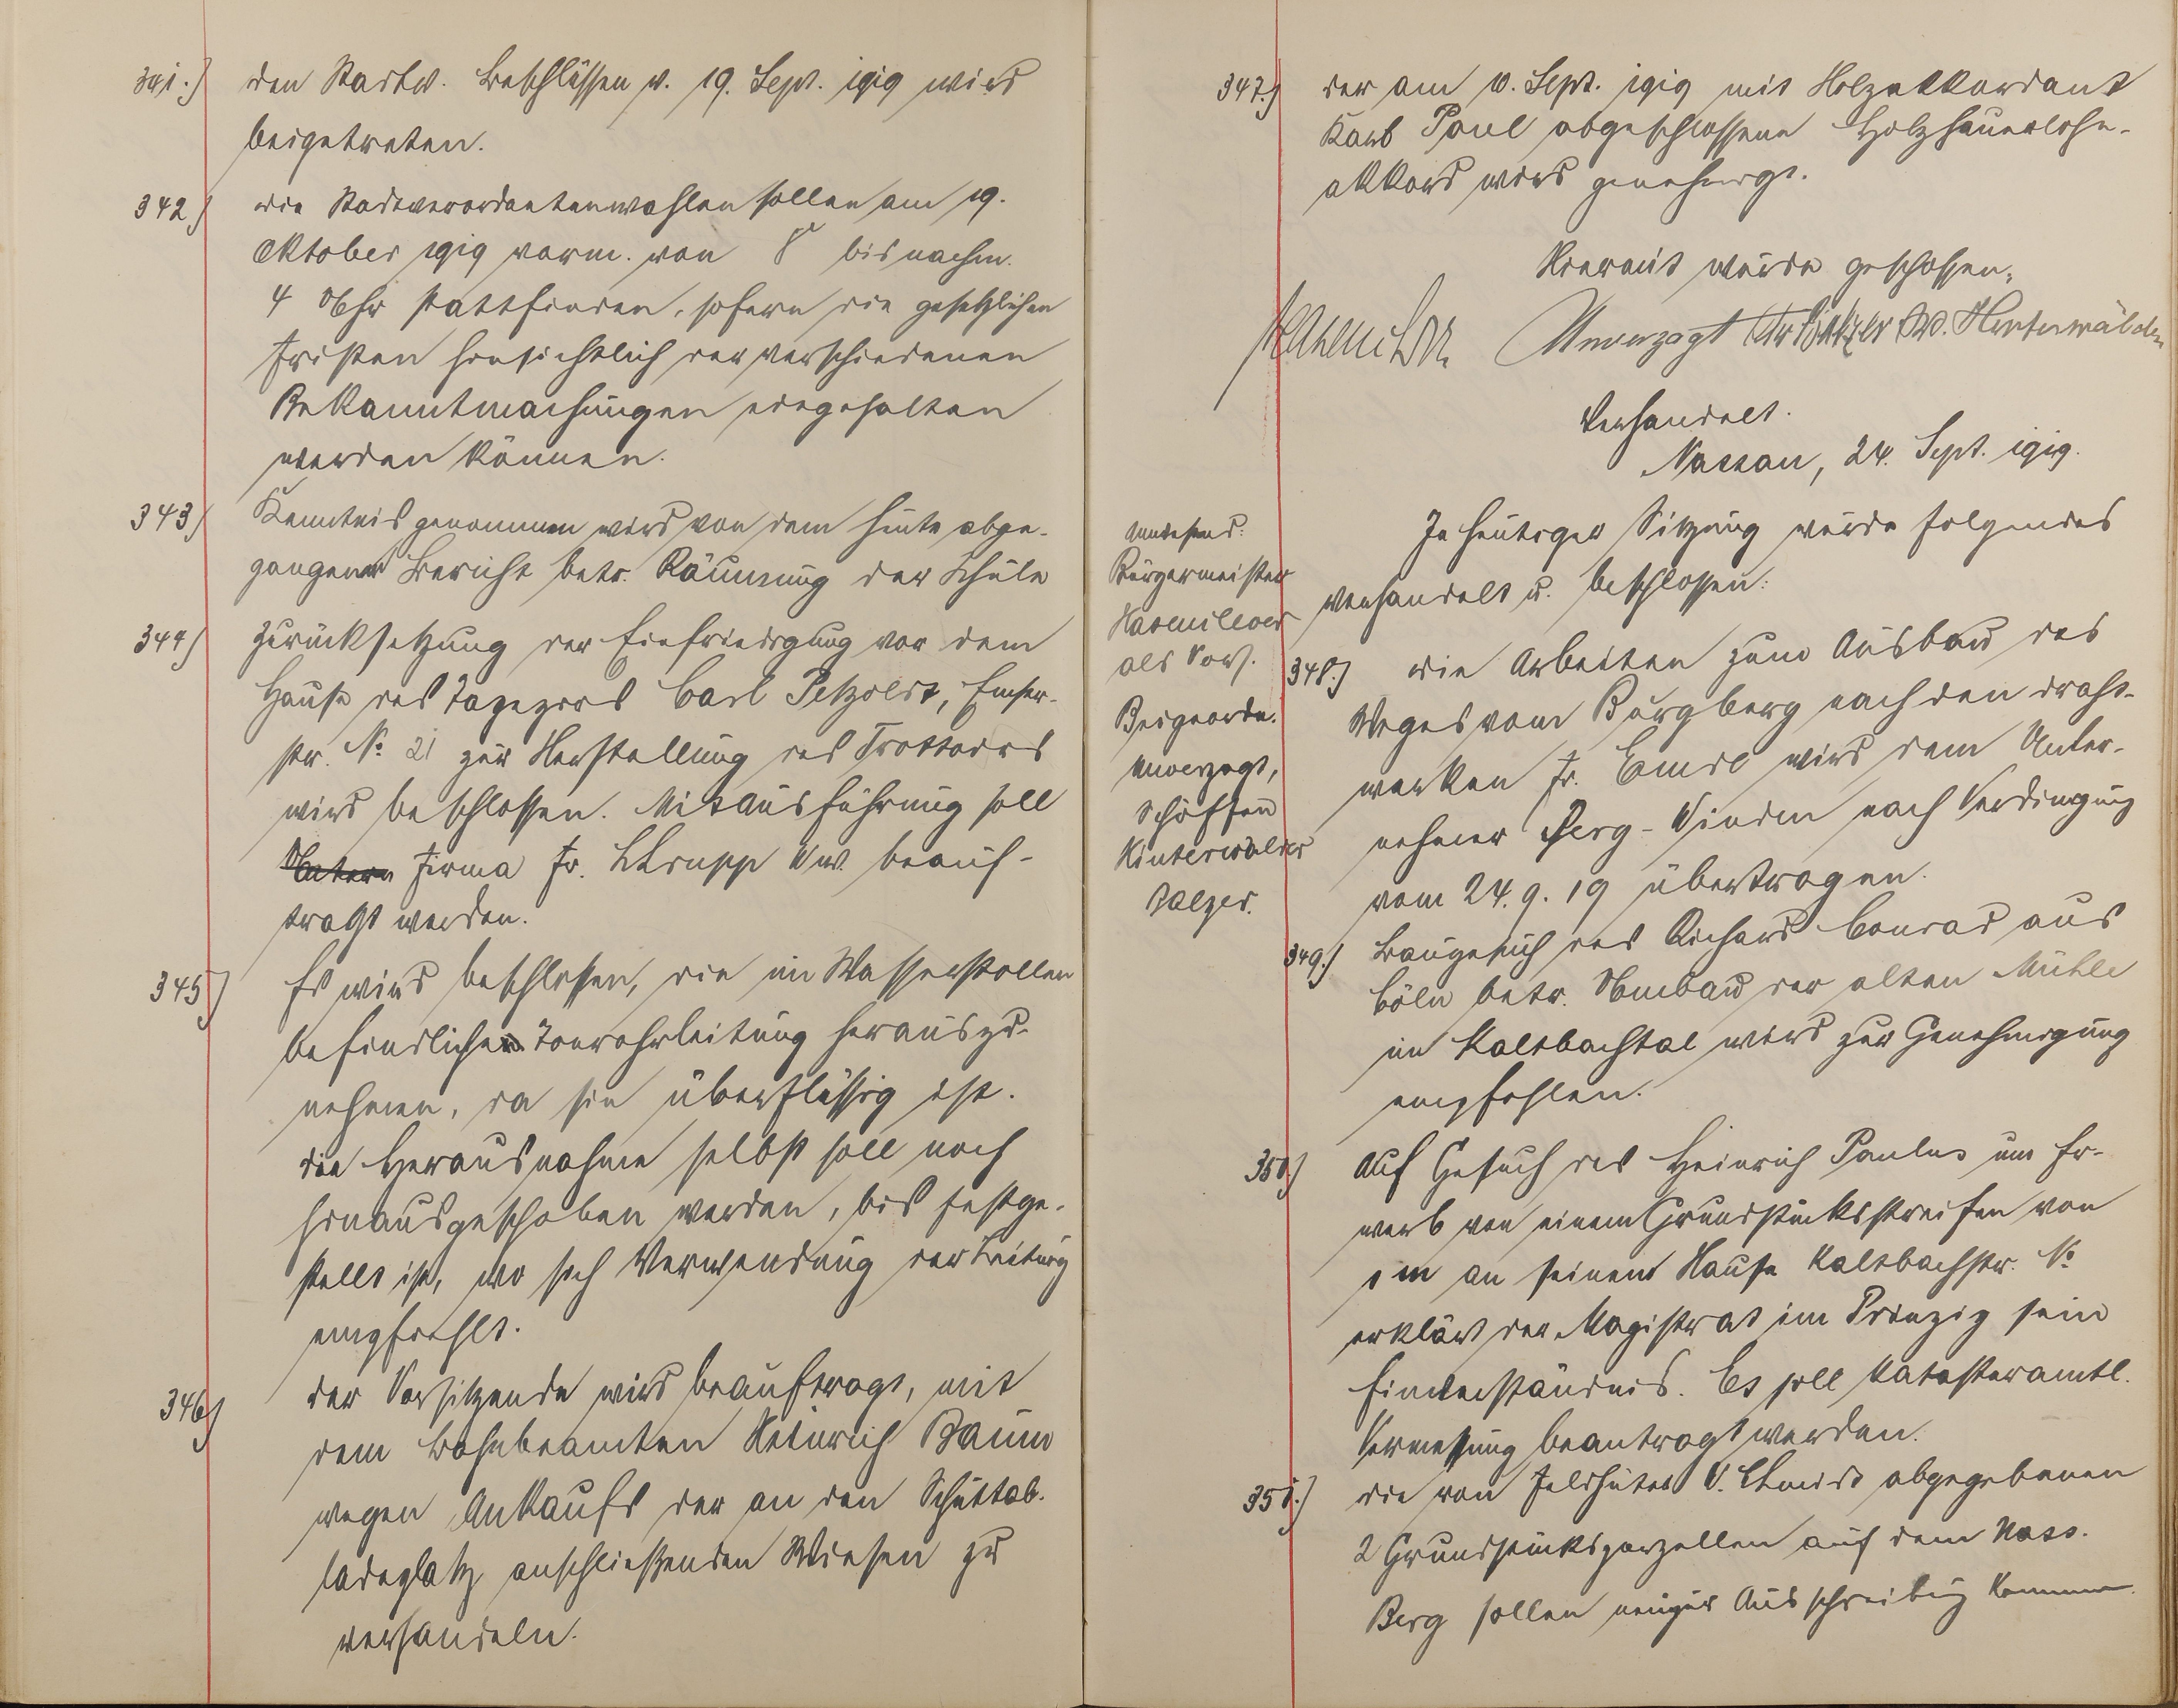 341.) Den Stadtv. Beschlüssen v. 19. Sept. 1919 wird
beigetreten.
342) Die Stadtverordnetenwahlen sollen am 19.
Oktober 1919 vorm. von 8 bis nachm.
4 Uhr stattfinden, sofern die gesetzlichen
Fristen hinsichtlich der verschiedenen
Bekanntmachungen eingehalten
werden können.
343) Kenntnis genommen wird von dem heute abge-
gangenen Bericht betr. Räumung der Schule
344) Zurücksetzung der Einfriedigung vor dem
Hause des Carl Petzoldt, Emser-
str. No 21 zur Herstellung des Trottoirs
wird beschlossen. Mit Ausführung soll
Firma Fr. Ww. beauf-
tragt werden.
345) Es wird beschlossen, die im Wasserstollen
befindliche Tonrohrleitung herauszu-
nehmen, da sie überflüssig ist.
Die Herausnahme selbst soll noch
hinausgeschoben werden, bis festge-
stellt ist, wo sich Verwendung der Leitung
empfiehlt.
346) Der Vorsitzende wird beauftragt, mit
dem Bahnbeamten Heinrich Baum
wegen Ankaufs der an den Schuttab-
ladeplatz anschließenden Wiesen zu
verhandeln.
347.) Der am Sept. 1919 mit Holzakkordant
Karl Paul abgeschlossene Holzhauerlohn-
akkord wird genehmigt.
Hiermit wurde geschlossen.
Unverzagt
Verhandelt.
Nassau, 24. Sept. 1919.
In heutiger Sitzung wurde folgendes
verhandelt u. beschlossen:
Anwesend:
Bürgermeister
Hasenclever
als Vors.
Beigeordn.
Unverzagt,
Schöffen
Hinterwälder
348.) Die Arbeiten zum Ausbau des
Weges vom Burgberg nach den Draht-
werken Fr. wird dem Unter-
nehmer Winden nach Verdingung
vom 24.9.19 übertragen.
349.) Baugesuch des Richard Conrad aus
Cöln betr. Umbau der alten Mühle
im Kaltbachtal wird zur Genehmigung
empfohlen.
350) Auf Gesuch des Heinrich Paulus um Er-
werb von einem Grundstücksstreifen von
1 m an seinem Hause Kaltbachstr. No
erklärt der Magistrat im Prinzip sein
Einverständnis. Es soll katasteramtl.
Vermessung beantragt werden.
351.) Die von Feldhüter abgegebenen
2 Grundstücksparzellen auf dem Nass.
Berg sollen Ausschreibung kommen